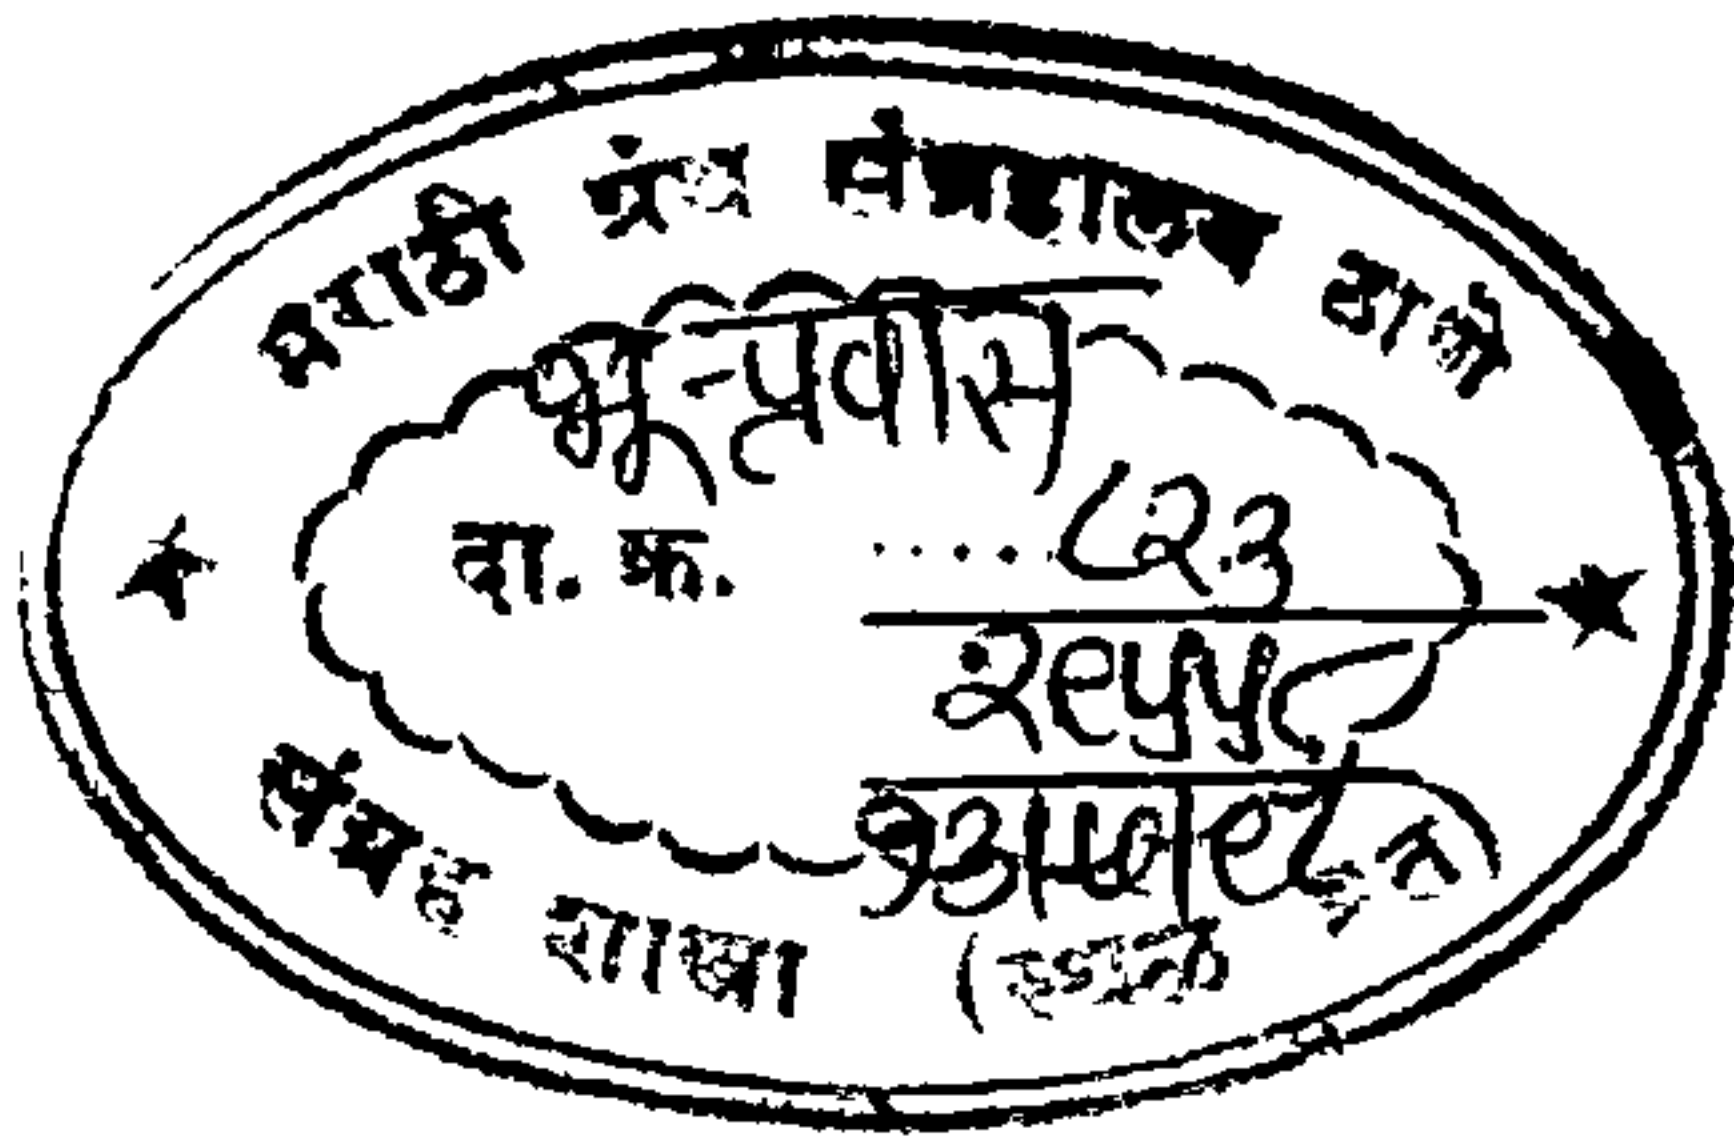 मराठी ग्रंथ संग्रहालय ठाणे
भू-प्रवास
दा. क्र. ....८२३
२९५५८
१३।७।९८
संग्रह शाखा